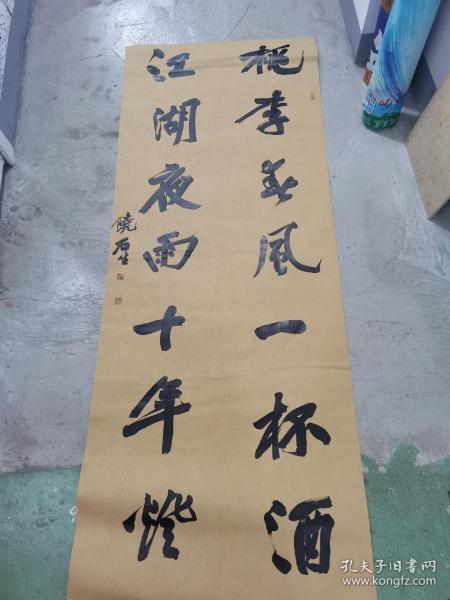 桃李春风一杯酒
江湖夜雨十年燈
饒石生
孔夫子旧书网
www.kongfz.com